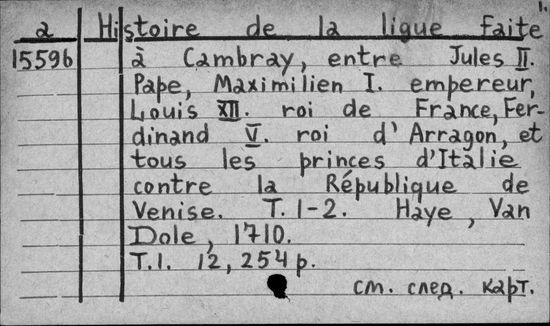 1.
a Histoire de la ligue faite
15596 à Cambray, entre Jules II.
Pape, Maximilien I. empereur,
Louis XII. roi de France, Fer-
dinand V. roi d'Arragon, et
tous les princes d'Italie
contre la République de
Venise. T. 1-2. Haye, Van
Dole, 1710.
T.1. 12, 254 p.
см. след. карт.